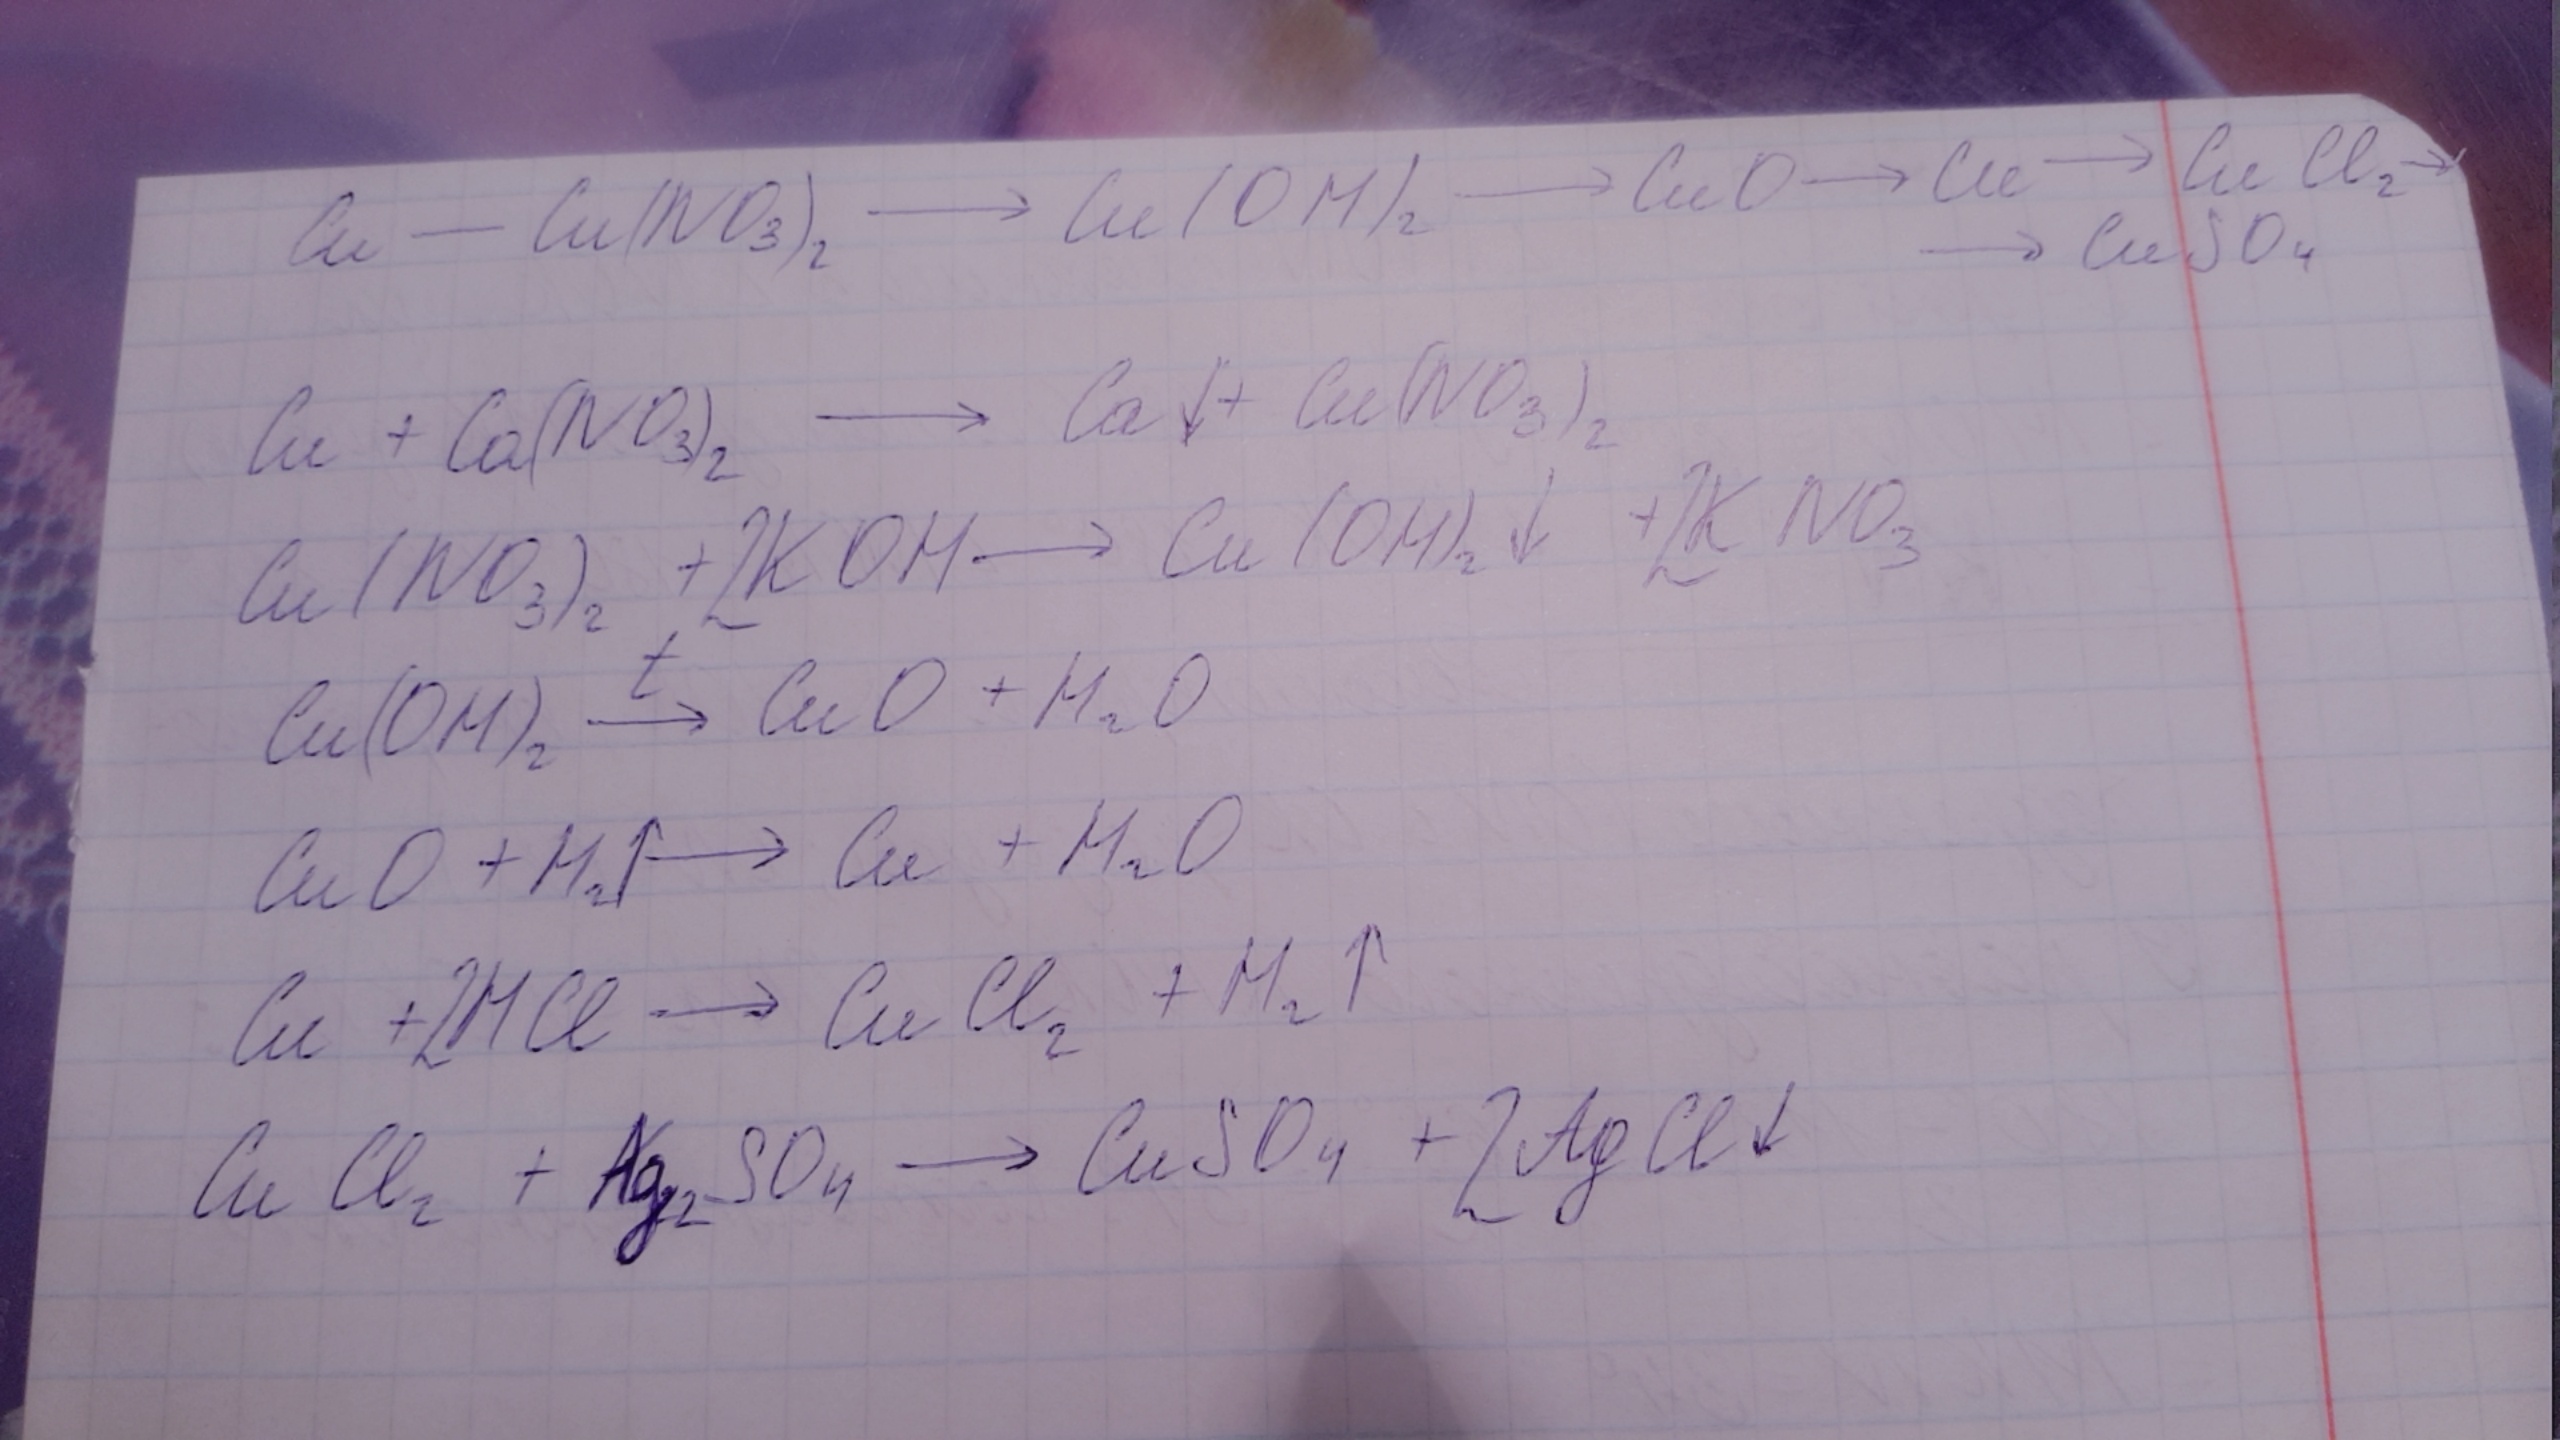 Cu — Cu(NO₃)₂ → Cu(OH)₂ → CuO → Cu → CuCl₂ →
→ CuSO₄
Cu + Ca(NO₃)₂ → Ca↓ + Cu(NO₃)₂
Cu(NO₃)₂ + 2KOH → Cu(OH)₂↓ + 2KNO₃
Cu(OH)₂ →ᵗ CuO + H₂O
CuO + H₂↑ → Cu + H₂O
Cu + 2HCl → CuCl₂ + H₂↑
CuCl₂ + Ag₂SO₄ → CuSO₄ + 2AgCl↓